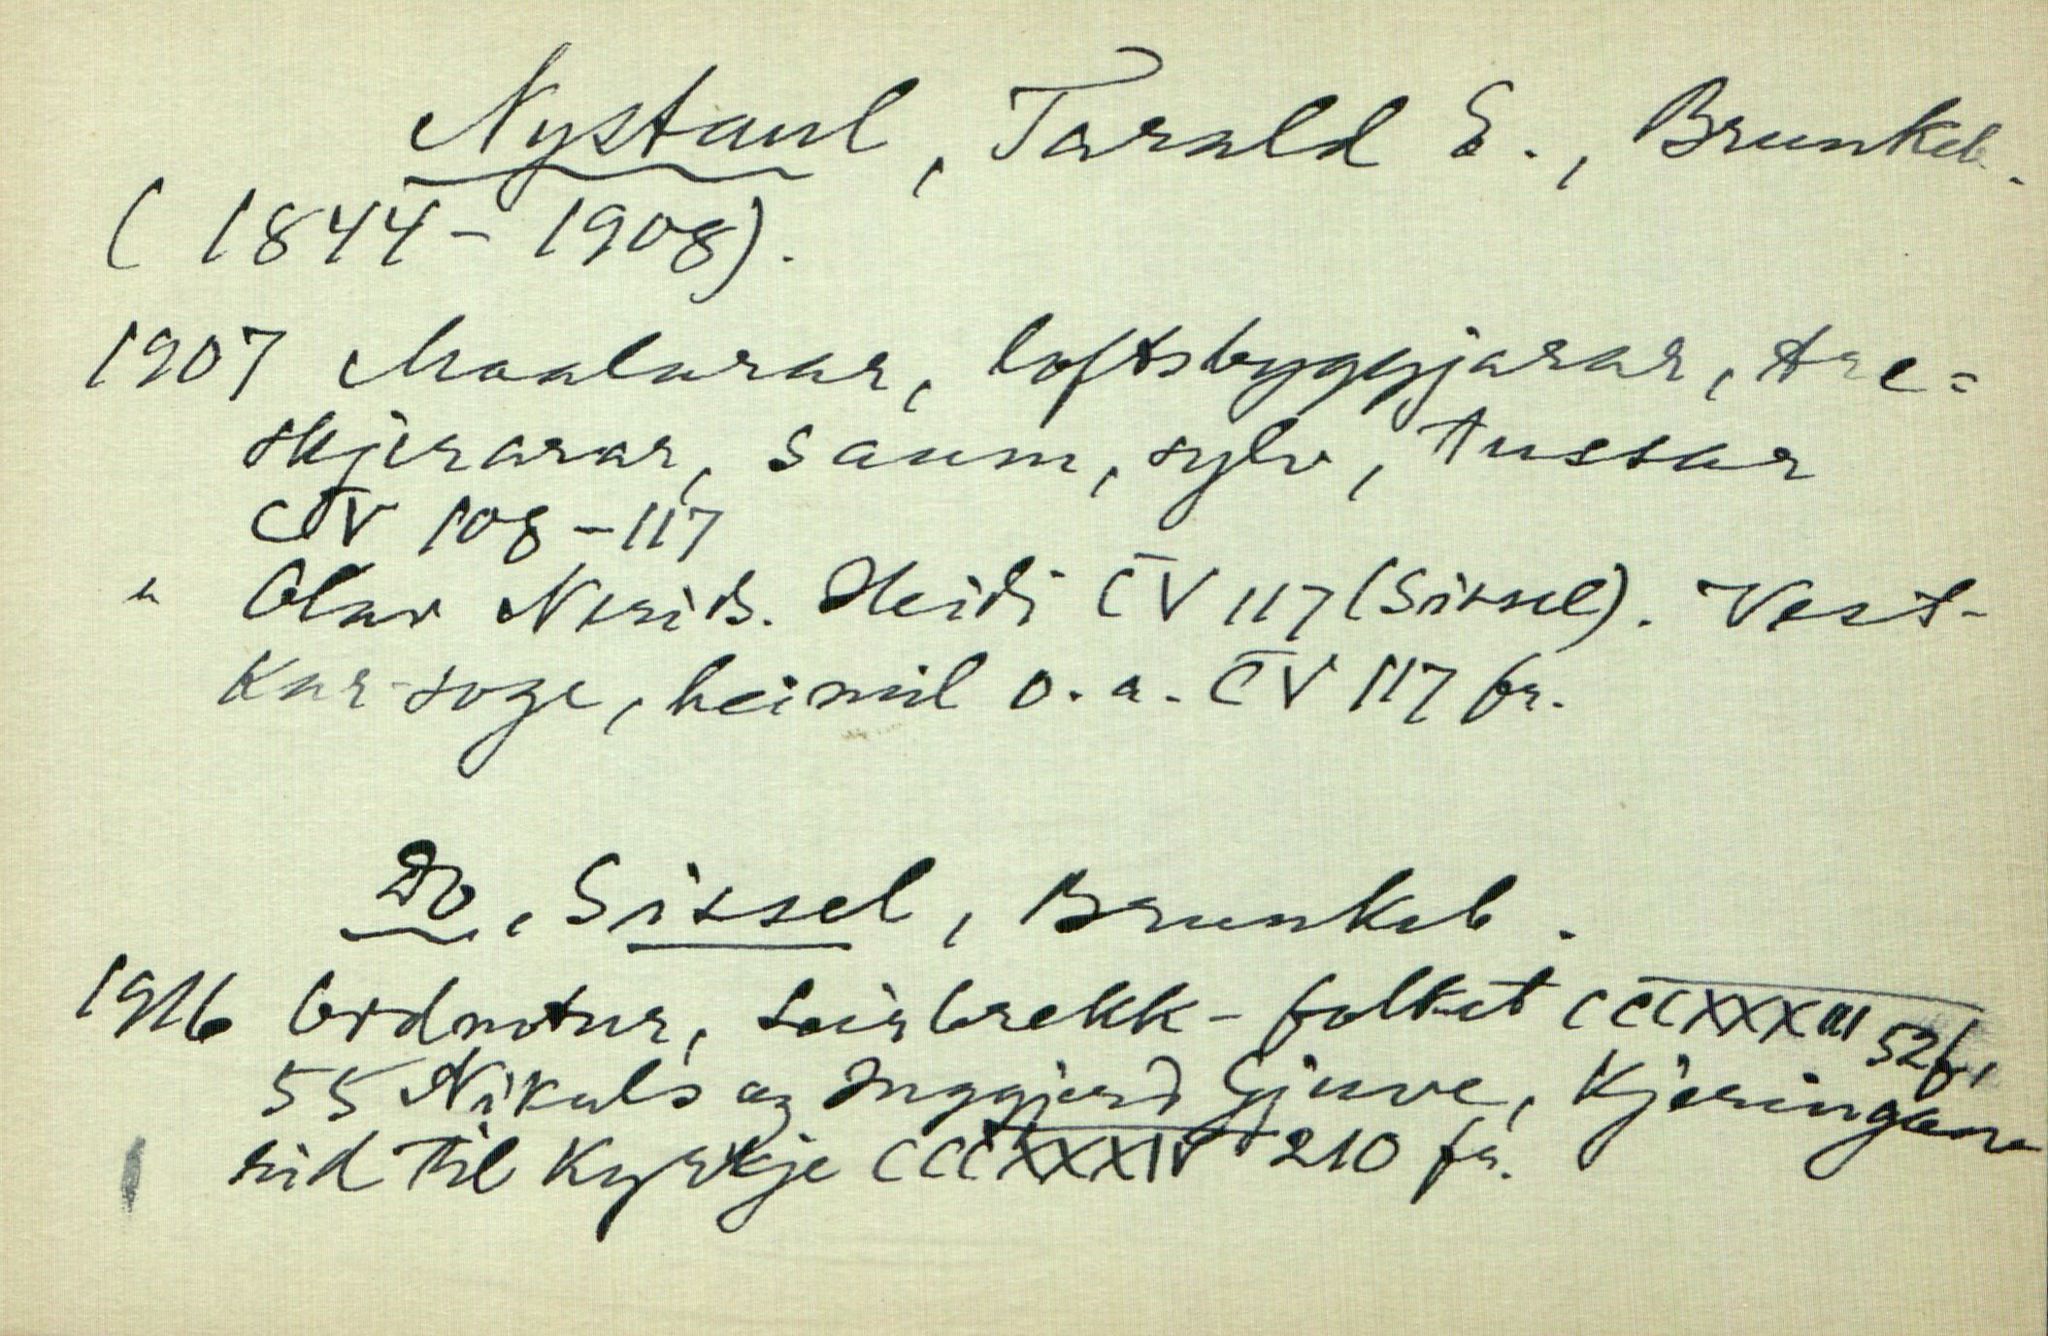 Nystaul, Tarald E., Brunkeb.
(1844 - 1908).
1907 Maalarar, loftsbyggjarar, tre=
skjerarar, saum, sylv, tussar
CV 108-117
" Olav Nerids. Heidi CV 117 (Sissel). Vest-
kar-soge, heimil o.a. CV 117 fr.
Do, Sissel, Brunkeb.
1916 Ordnotur, Leirbrekk-folket CCCXXXIII 52 fr,
55 Nikuls og Inggjerd Gjuve, Kjeringane
rid til kyrkje CCCXXXIV 210 fr.